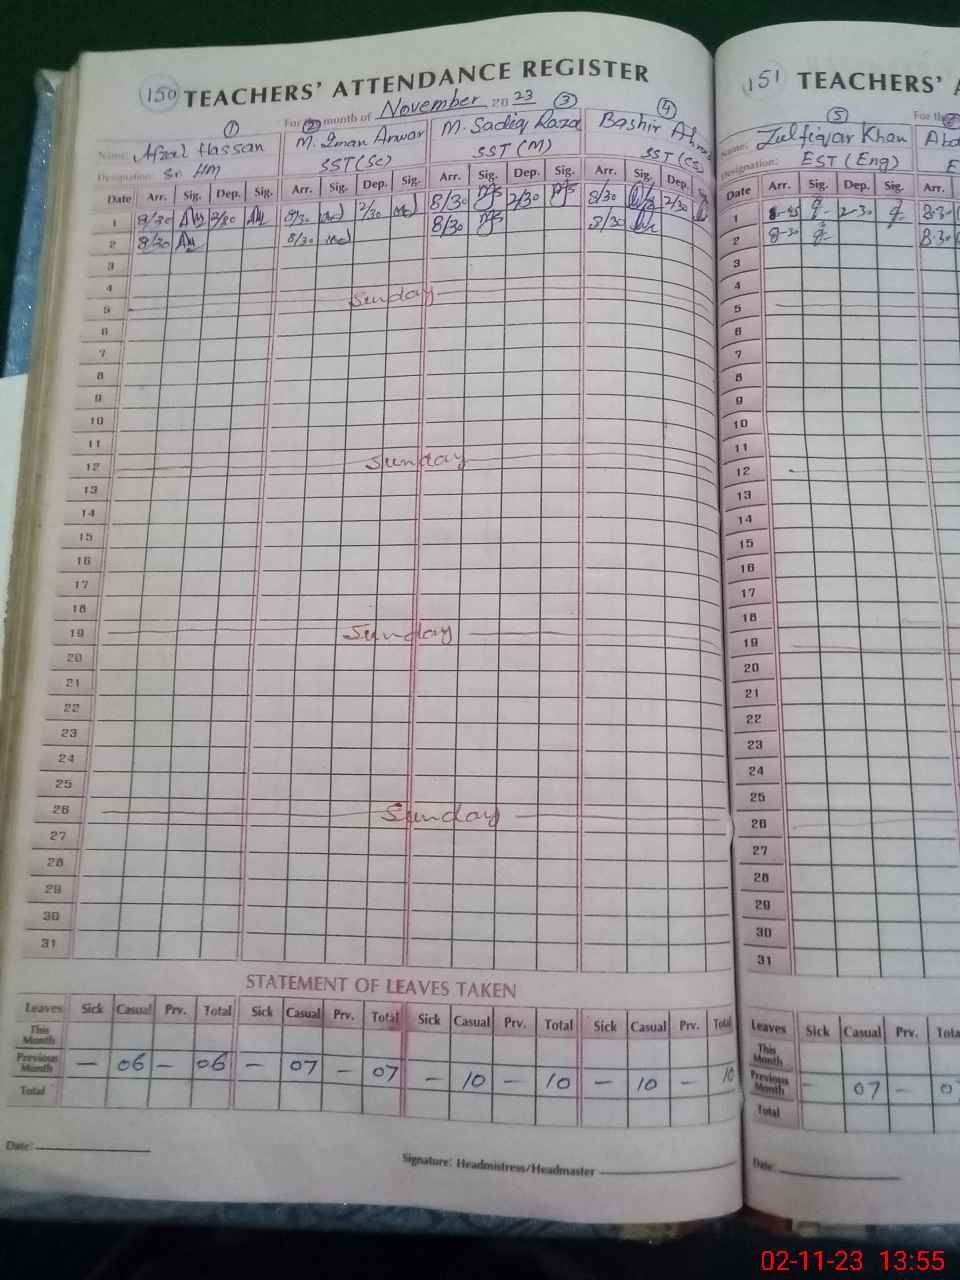 150 TEACHERS' ATTENDANCE REGISTER
For the month of November 2023
1 2 3 4
Name: Afzal Hassan M. Iman Anwar M. Sadiq Raza Bashir
Designation: Sr. HM SST (Sc) SST (M) SST (CS)
Date Arr. Sig. Dep. Sig. Arr. Sig. Dep. Sig. Arr. Sig. Dep. Sig. Arr. Sig. Dep.
1 8/30 2/30 8/30 2/30 8/30 2/30 8/30 2/30
2 8/30 8/30 8/30 8/30
3
4
5 Sunday
6
7
8
9
10
11
12 Sunday
13
14
15
16
17
18
19 Sunday
20
21
22
23
24
25
26 Sunday
27
28
29
30
31
STATEMENT OF LEAVES TAKEN
Leaves Sick Casual Prv. Total Sick Casual Prv. Total Sick Casual Prv. Total Sick Casual Prv. Total
This Month
Previous Month — 06 — 06 — 07 — 07 — 10 — 10 — 10 — 10
Total
Date:
Signature: Headmistress/Headmaster
151 TEACHERS'
5
Name: Zulfiqar Khan
Designation: EST (Eng)
Date Arr. Sig. Dep. Sig. Arr.
1 2-30 8-30
2 8-30 8-30
3
4
5
6
7
8
9
10
11
12
13
14
15
16
17
18
19
20
21
22
23
24
25
26
27
28
29
30
31
Leaves Sick Casual Prv.
This Month
Previous Month — 07 —
Total
Date:
02-11-23 13:55